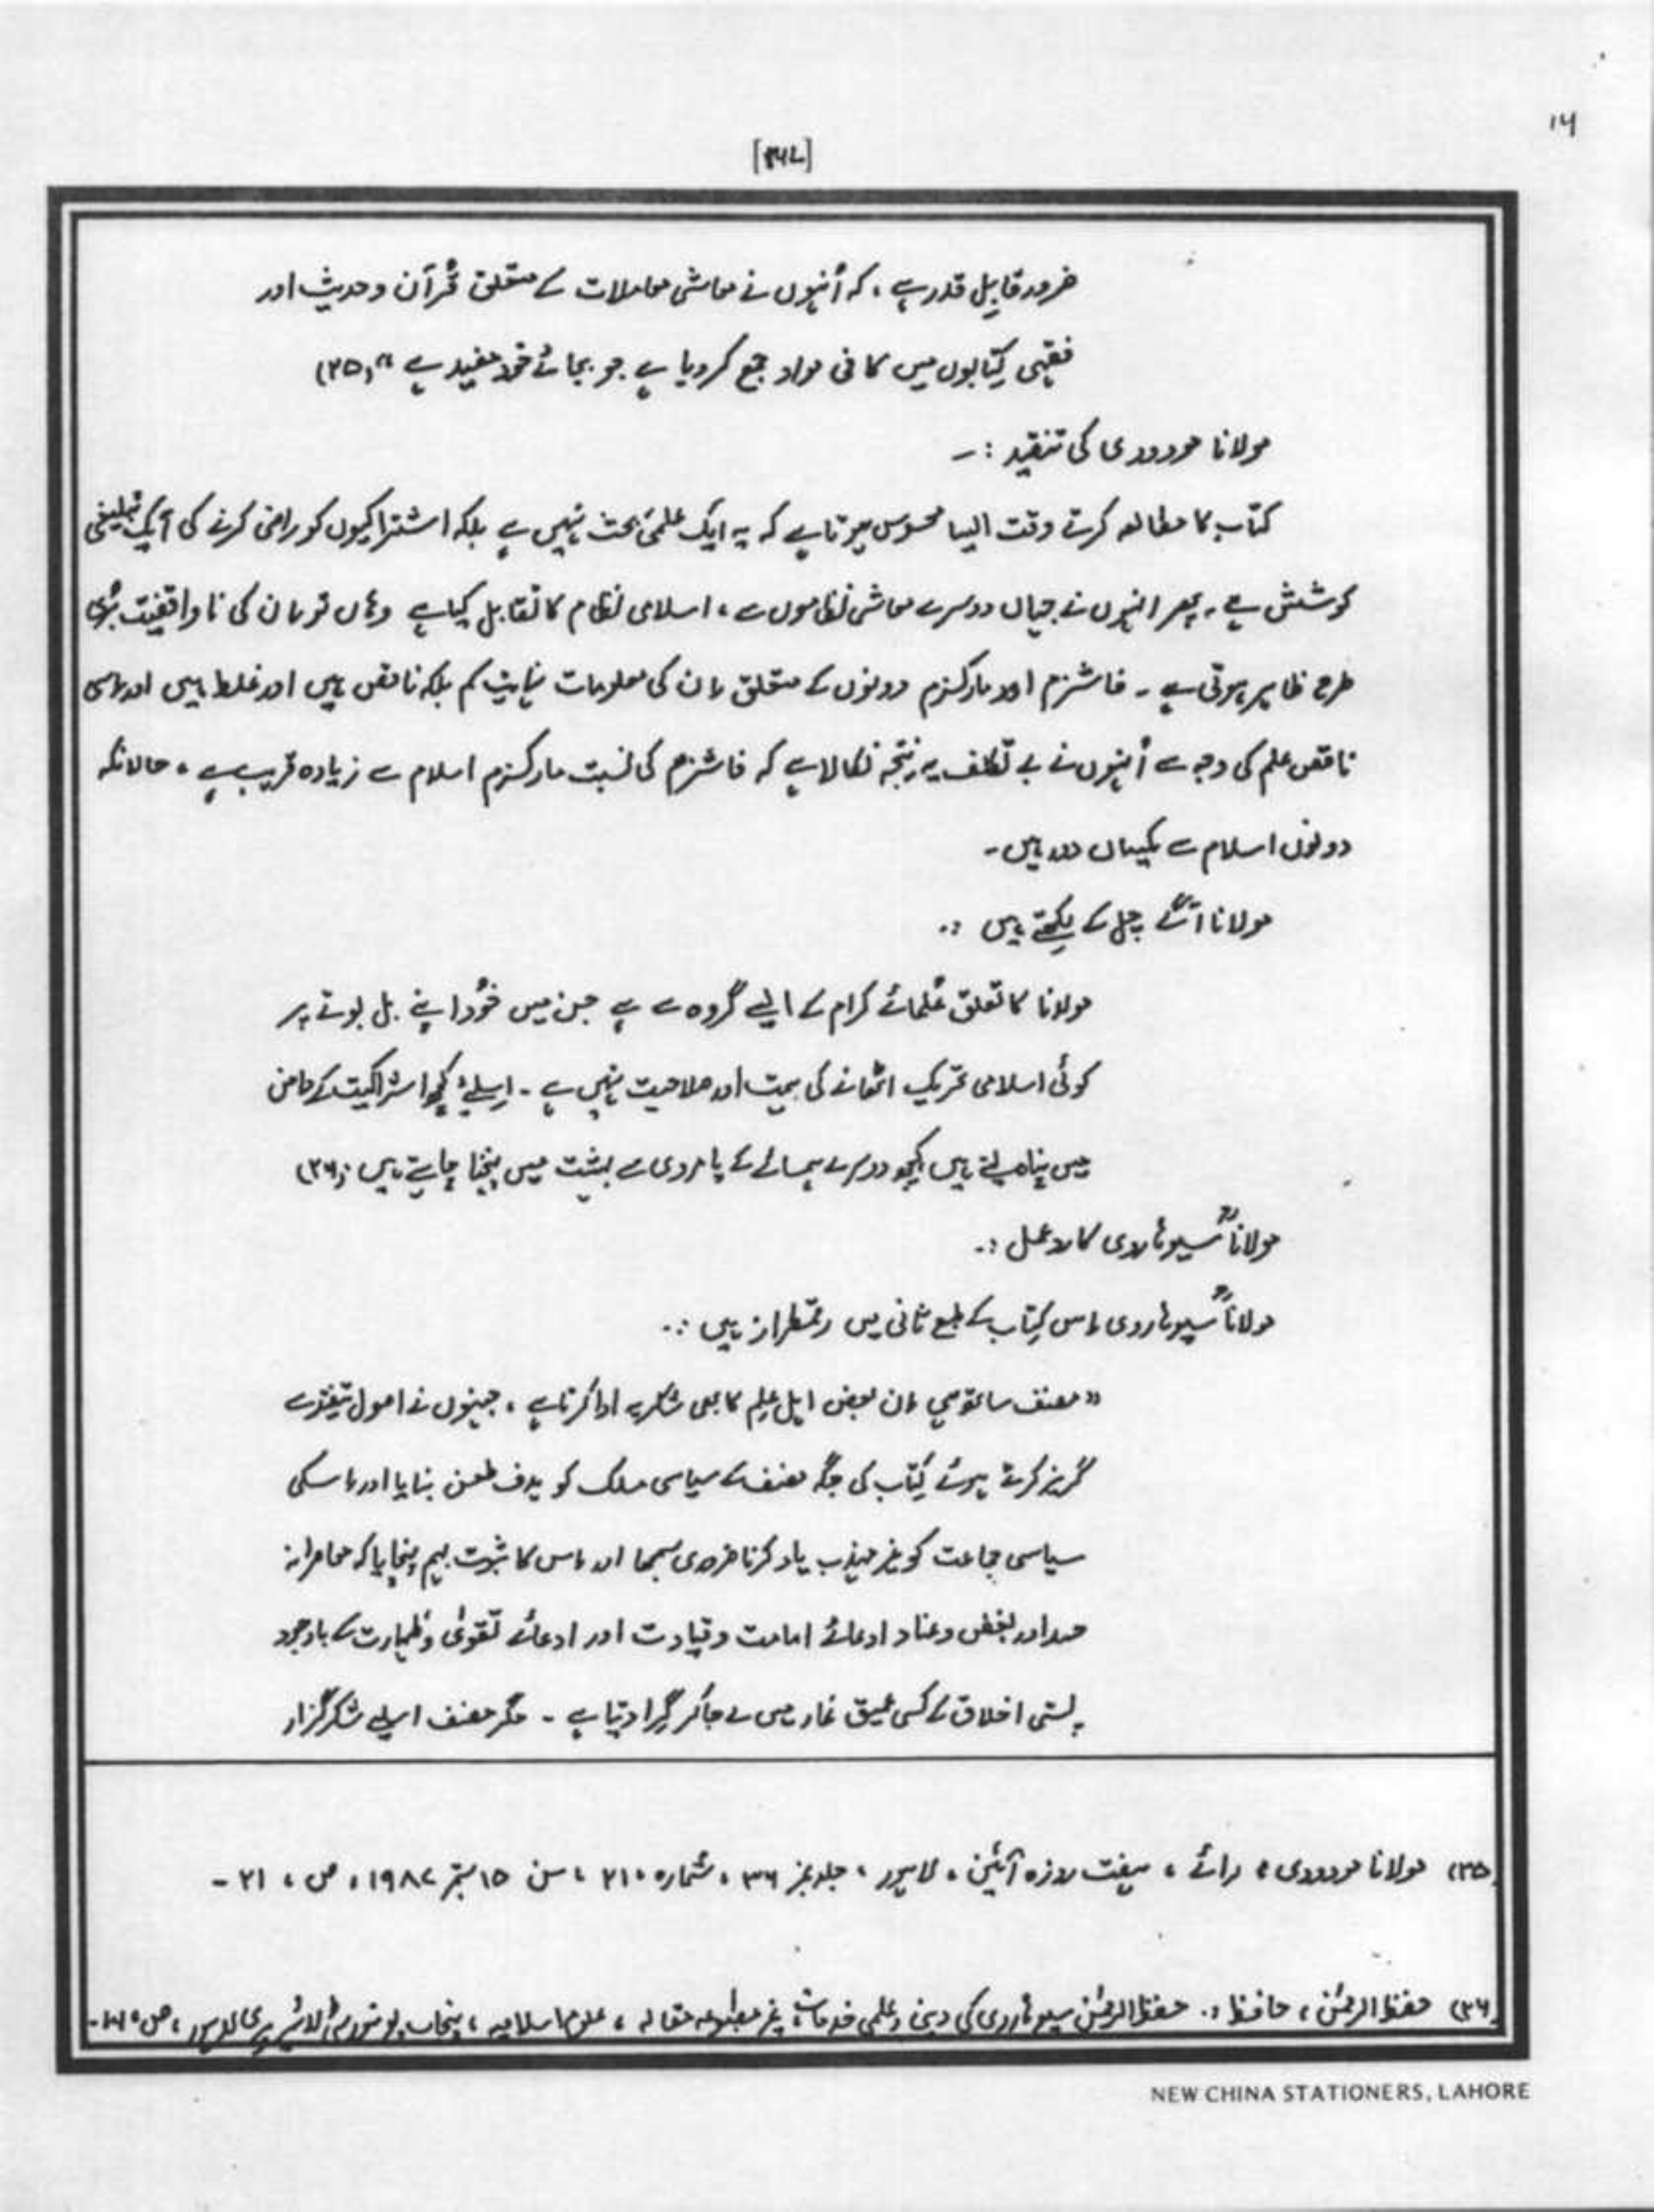 ۱۶
ضرور قابلِ قدر ہے، کہ اُنہوں نے معاشی معاملات کے متعلق قُرآن و حدیث اور
فقہی کِتابوں میں کافی مواد جمع کر دیا ہے جو بجائے خود مفید ہے " (۳۵)
مولانا مودودی کی تنقید :۔
کتاب کا مطالعہ کرتے وقت ایسا محسوس ہوتا ہے کہ یہ ایک علمی بحث نہیں ہے بلکہ اشتراکیوں کو راضی کرنے کی ایک تبلیغی
کوشش ہے۔ پھر انہوں نے جہاں دوسرے معاشی نظاموں سے، اسلامی نظام کا تقابل کیا ہے وہاں تو اِن کی ناواقفیت بُری
طرح ظاہر ہوتی ہے ۔ فاشزم اور مارکسزم دونوں کے متعلق اِن کی معلومات نہایت کم بلکہ ناقص ہیں اور غلط ہیں اور اِسی
ناقص علم کی وجہ سے اُنہوں نے بے تکلف یہ نتیجہ نکالا ہے کہ فاشزم کی نسبت مارکسزم اسلام سے زیادہ قریب ہے ، حالانکہ
دونوں اسلام سے یکساں دور ہیں۔
مولانا آگے چل کے لِکھتے ہیں :۔
مولانا کا تعلق عُلمائے کرام کے ایسے گروہ سے ہے جن میں خُود اپنے بل بوتے پر
کوئی اسلامی تحریک اٹھانے کی ہمت اور صلاحیت نہیں ہے ۔ اِسلیے کچھ اشتراکیت کے دامن
میں پناہ لیتے ہیں کچھ دوسرے ہمسائے کے پامردی سے بہشت میں پہنچنا چاہتے ہیں (۳۶)
مولاناؒ سیوہاروی کا ردِ عمل :۔
مولاناؒ سیوہاروی اِس کِتاب کے طبع ثانی میں رقمطراز ہیں :۔
" مصنف ساتھ ہی اِن بعض اہل عِلم کا بھی شکریہ ادا کرتا ہے ، جنہوں نے اصول تنقید سے
گریز کرتے ہوئے کِتاب کی جگہ مصنف کے سیاسی مسلک کو ہدف طعن بنایا اور اِسکی
سیاسی جماعت کو غیر مہذب یاد کرنا ضروری سمجھا اور اِس کا ثبوت بہم پہنچایا کہ معاصرانہ
حسد اور بغض و عناد ادعائے امامت و قیادت اور ادعائے تقویٰ و طہارت کے باوجود
پستی اخلاق کے کسی عمیق غار میں لے جا کر گِرا دیتا ہے ۔ مگر مصنف اسلیے شکر گزار
(۳۵) مولانا مودودی ، رائے ، ہفت روزہ آئین ، لاہور ، جلد نمبر ۳۶ ، شمارہ ۲۱۰ ، سن ۱۵ ستمبر ۱۹۸۷ ، ص ، ۲۱ ۔
(۳۶) حفظ الرحمٰن ، حافظ :۔ حفظ الرحمٰن سیوہاروی کی دینی و علمی خدمات، غیر مطبوعہ مقالہ ، علوم اسلامیہ ، پنجاب یونیورسٹی لائبریری لاہور ، ص
NEW CHINA STATIONERS, LAHORE